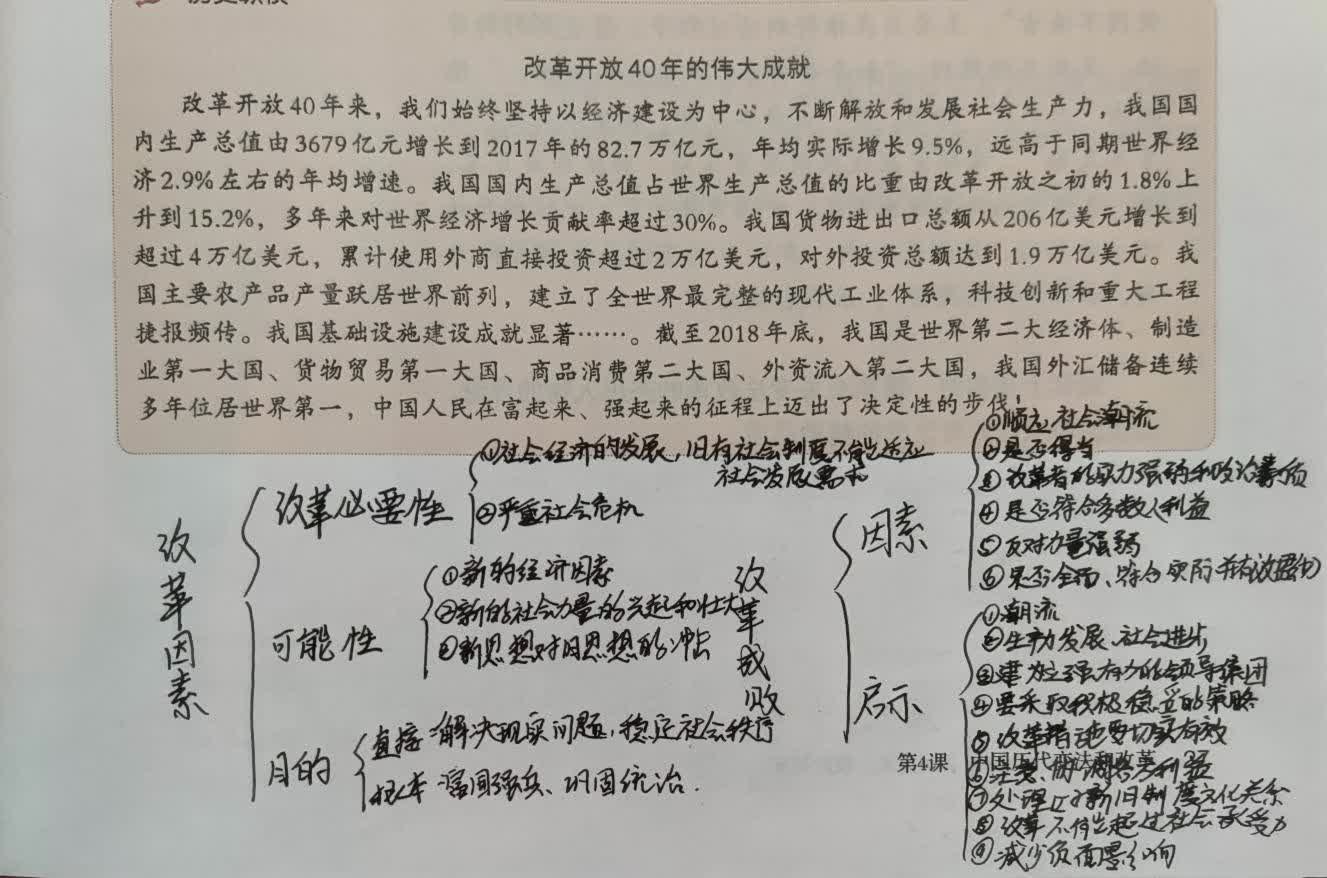 改革开放40年的伟大成就
改革开放40年来，我们始终坚持以经济建设为中心，不断解放和发展社会生产力，我国国
内生产总值由3679亿元增长到2017年的82.7万亿元，年均实际增长9.5%，远高于同期世界经
济2.9%左右的年均增速。我国国内生产总值占世界生产总值的比重由改革开放之初的1.8%上
升到15.2%，多年来对世界经济增长贡献率超过30%。我国货物进出口总额从206亿美元增长到
超过4万亿美元，累计使用外商直接投资超过2万亿美元，对外投资总额达到1.9万亿美元。我
国主要农产品产量跃居世界前列，建立了全世界最完整的现代工业体系，科技创新和重大工程
捷报频传。我国基础设施建设成就显著……。截至2018年底，我国是世界第二大经济体、制造
业第一大国、货物贸易第一大国、商品消费第二大国、外资流入第二大国，我国外汇储备连续
多年位居世界第一，中国人民在富起来、强起来的征程上迈出了决定性的步伐！
改革因素
改革必要性
①社会经济的发展，旧有社会制度不能适应
社会发展需求
②严重社会危机
可能性
①新的经济因素
②新的社会力量的兴起和壮大
③新思想对旧思想的冲击
目的
直接：解决现实问题，稳定社会秩序
根本：富国强兵、巩固统治.
改革成败
因素
①顺应社会潮流
②是否得当
③改革者的实力强弱和政治素质
④是否符合多数人利益
⑤反对力量强弱
⑥是否全面、符合实际并有效
启示
①潮流
②生产力发展、社会进步
③建立强有力的领导集团
④要采取积极稳妥的策略
⑤改革措施要切实有效
⑥利益
⑦处理好新旧制度文化关系
⑧改革不能超过社会承受力
⑨减少负面影响
第4课 中国历代变法和改革 27